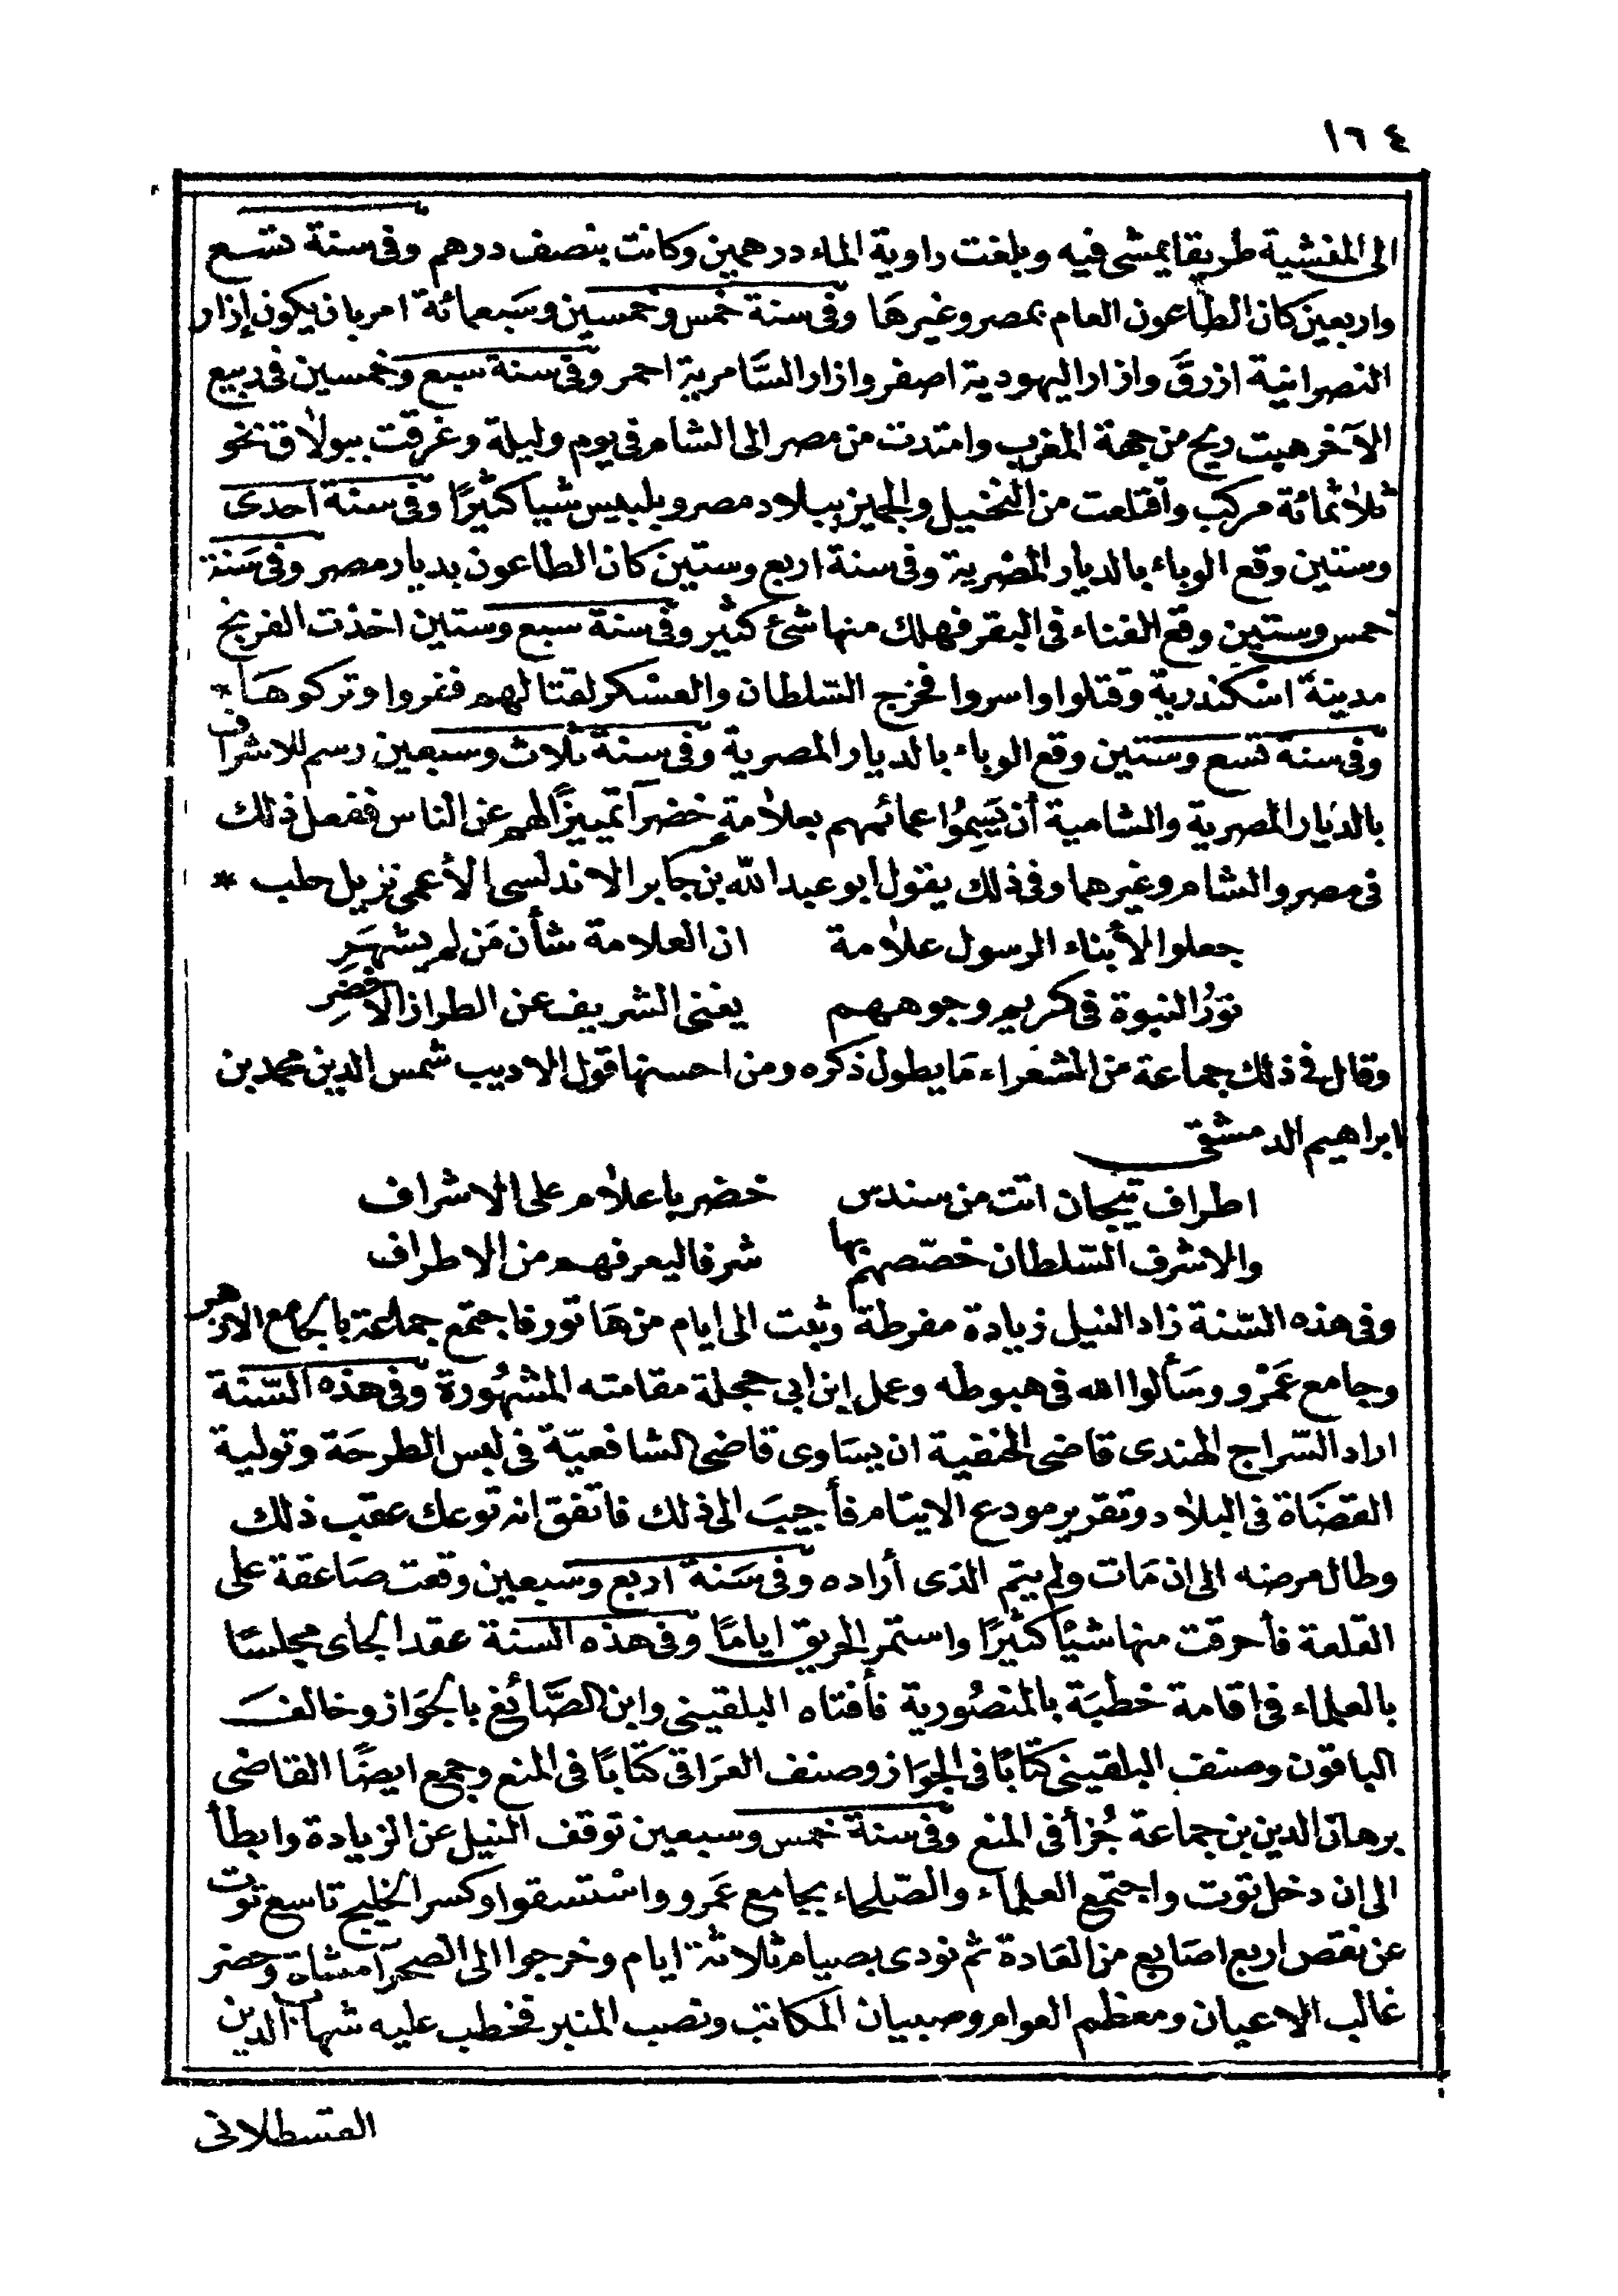 ١٦٤
الى المنشية طريقا يمشى فيه وبلغت راوية الماء درهمين وكانت بنصف درهم وفى سنة تسع
واربعين كان الطاعون العام بمصر وغيرها وفى سنة خمس وخمسين وسبعمائة امر بان يكون إزار
النصرانية ازرق وازار اليهودية اصفر وازار السَّامرية احمر وفى سنة سبع وخمسين فى ربيع
الآخر هبت ريح من جهة المغرب وامتدت من مصر الى الشام فى يوم وليلة وغرقت ببولاق نحو
ثلاثمائة مركب واقتلعت من النخيل والجميز ببلاد مصر وبلبيس شيا كثيرًا وفى سنة احدى
وستين وقع الوباء بالديار المصرية وفى سنة اربع وستين كان الطاعون بديار مصر وفى سَنة
خمس وستين وقع الفناء فى البقر فهلك منها شئ كثير وفى سنة سبع وستين اخذت الفرنج
مدينة اسكندرية وقتلوا واسروا فخرج السّلطان والعسْكر لقتالهم ففروا وتركوهَا *
وفى سنة تسع وستين وقع الوباء بالديار المصرية وفى سنة ثلاث وسبعين رسم للاشراف
بالديار المصرية والشامية أن يَسِمُوا عمائمهم بعلامة خضرآ تمييزًا لهم عن الناس ففعل ذلك
فى مصر والشام وغيرهما وفى ذلك يقول ابو عبد الله بن جابر الاندلسى الأعمى نزيل حلب *
جعلوا لأبناء الرسول علامة ان العلامة شأن مَن لم يشهَرِ
نوَرُ النبوة فى كريم وجوههم يغنى الشريف عن الطراز الأخضَرِ
وقال فى ذلك جماعة من الشعَراء مَا يطول ذكره ومن احسنها قول الاديب شمس الدين محمد بن
ابراهيم الدمشقى
اطراف تيجان اتت من سندس خضر باعلام على الاشراف
والاشرف السّلطان خصّصهم بها شرفا ليعرفهم من الاطراف
وفى هذه السّنة زاد النيل زيادة مفرطة وثبت الى ايام من هَاتور فاجتمع جماعة بالجامع الازهر
وجامع عَمْرو وسَألوا الله فى هبوطه وعمل ابن ابى حجلة مقامته المشهُورة وفى هذه السّنَة
اراد السّراج الهندى قاضى الحنفية ان يسَاوى قاضى الشافعيّة فى لبس الطرحَة وتولية
القضَاة فى البلاد وتقرير مودع الايتام فأجيبَ الى ذلك فاتفق انه توعك عقب ذلك
وطال مرضه الى ان مَات ولم يتم الذى أراده وفى سَنة اربع وسبعين وقعت صَاعقة على
القلعة فأحرقت منها شيًا كثيرًا واستمر الحريق ايامًا وفى هذه السنة عقد الجاى مجلسًا
بالعلماء فى اقامة خطبَة بالمنصُورية فأفتاه البلقينى وابن الصَّائغ بالجَواز وخالف
الباقون وصنف البلقينى كتابًا فى الجوَاز وصنف العرَاقى كتابًا فى المنع وجمع ايضًا القاضى
برهان الدين بن جماعة جُزأ فى المنع وفى سنة خمس وسبعين توقف النيل عن الزيادة وابطأ
الى ان دخل توت واجتمع العلمآء والصّلحاء بجامع عَمرو واسْتسقوا وكسر الخليج تاسع توت
عن نقص اربع اصَابع من العَادة ثم نودى بصيام ثلاثة ايام وخرجوا الى الصحرآ مشاة وحضر
غالب الاعيان ومعظم العوام وصبيان المكاتب ونصب المنبر فخطب عليه شهاب الدين
القسطلانى